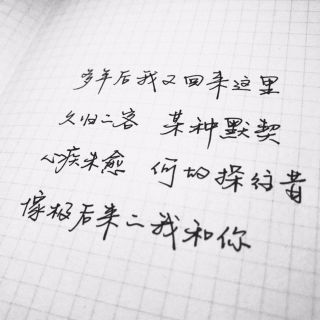 多年后我又回来这里
久归之客 某种默契
心疾未愈 何如探往昔
像极后来之我和你